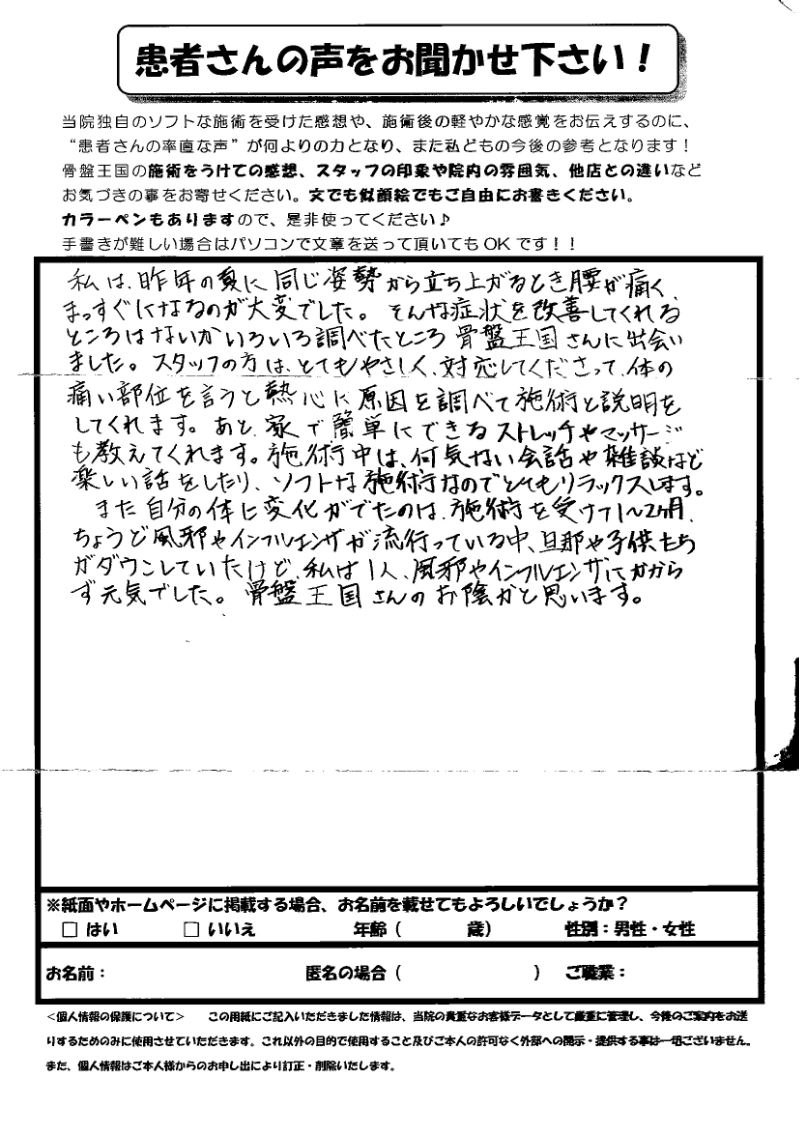 患者さんの声をお聞かせ下さい！
当院独自のソフトな施術を受けた感想や、施術後の軽やかな感覚をお伝えするのに、
“患者さんの率直な声”が何よりの力となり、また私どもの今後の参考となります！
骨盤王国の施術をうけての感想、スタッフの印象や院内の雰囲気、他店との違いなど
お気づきの事をお寄せください。文でも似顔絵でもご自由にお書きください。
カラーペンもありますので、是非使ってください♪
手書きが難しい場合はパソコンで文章を送って頂いてもOKです！！
私は、昨年の夏に同じ姿勢から立ち上がるとき腰が痛く、
まっすぐになるのが大変でした。そんな症状を改善してくれる
ところはないかいろいろ調べたところ骨盤王国さんに出会い
ました。スタッフの方は、とてもやさしく、対応してくださって、体の
痛い部位を言うと熱心に原因を調べて施術と説明を
してくれます。あと、家で簡単にできるストレッチやマッサージ
も教えてくれます。施術中は、何気ない会話や雑談など
楽しい話をしたり、ソフトな施術なのでとてもリラックスします。
また自分の体に変化がでたのは、施術を受けて1〜2ヶ月、
ちょうど風邪やインフルエンザが流行っている中、旦那や子供たち
がダウンしていたけど、私は1人、風邪やインフルエンザにかから
ず元気でした。骨盤王国さんのお陰かと思います。
※紙面やホームページに掲載する場合、お名前を載せてもよろしいでしょうか？
□ はい □ いいえ 年齢（ 歳） 性別：男性・女性
お名前： 匿名の場合（ ） ご職業：
＜個人情報の保護について＞ この用紙にご記入いただきました情報は、当院の貴重なお客様データとして厳重に管理し、今後のご案内をお送
りするためのみに使用させていただきます。これ以外の目的で使用すること及びご本人の許可なく外部への開示・提供する事は一切ございません。
また、個人情報はご本人様からのお申し出により訂正・削除いたします。